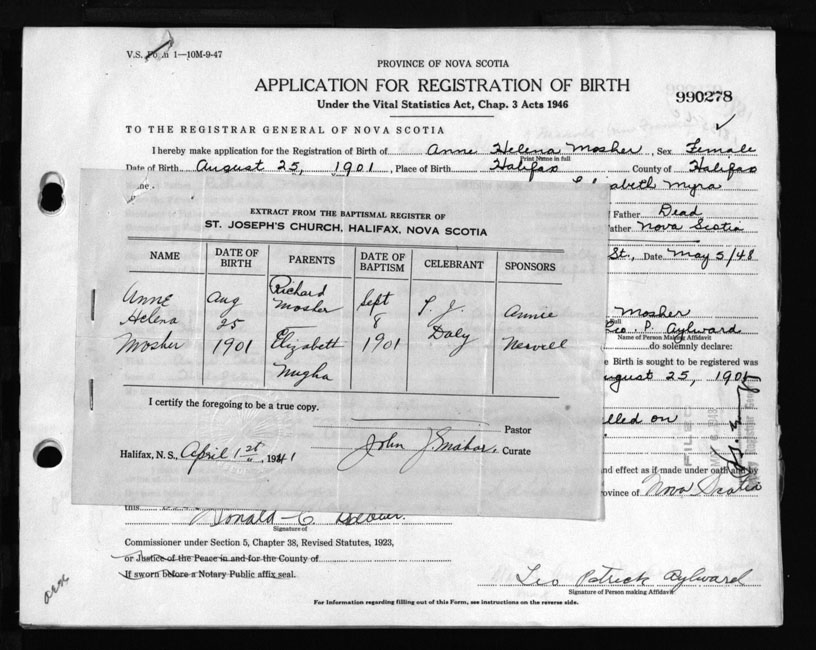 V.S. Form 1—10M-9-47
PROVINCE OF NOVA SCOTIA
APPLICATION FOR REGISTRATION OF BIRTH
990278
Under the Vital Statistics Act, Chap. 3 Acts 1946
TO THE REGISTRAR GENERAL OF NOVA SCOTIA
I hereby make application for the Registration of Birth of Anne Helena Mosher, Sex Female
Print Name in full
Date of Birth August 25, 1901, Place of Birth Halifax County of Halifax
Elizabeth Myra
of Father Dead
Father Nova Scotia
St., Date May 5/48
EXTRACT FROM THE BAPTISMAL REGISTER OF
ST. JOSEPH'S CHURCH, HALIFAX, NOVA SCOTIA
NAME DATE OF BIRTH PARENTS DATE OF BAPTISM CELEBRANT SPONSORS
Anne Helena Mosher
Aug 25 1901
Richard Mosher
Elizabeth
Sept 8 1901
Daly
Annie
I certify the foregoing to be a true copy.
Pastor
Halifax, N.S., April 1st, 1941 John J. Curate
Mosher
Leo. P. Aylward
Name of Person Making Affidavit
do solemnly declare:
Birth is sought to be registered was
August 25, 1901
on
FILED
and effect as if made under oath and by
Province of Nova Scotia
this
Donald C.
Signature of
Commissioner under Section 5, Chapter 38, Revised Statutes, 1923,
or Justice of the Peace in and for the County of
If sworn before a Notary Public affix seal.
Leo Patrick Aylward
Signature of Person making Affidavit
For Information regarding filling out of this Form, see instructions on the reverse side.